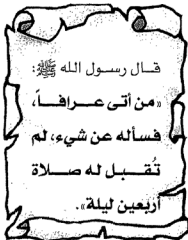 قال رسول الله ﷺ:
«من أتى عرافاً،
فسأله عن شيء، لم
تُقبل له صلاة
أربعين ليلة».